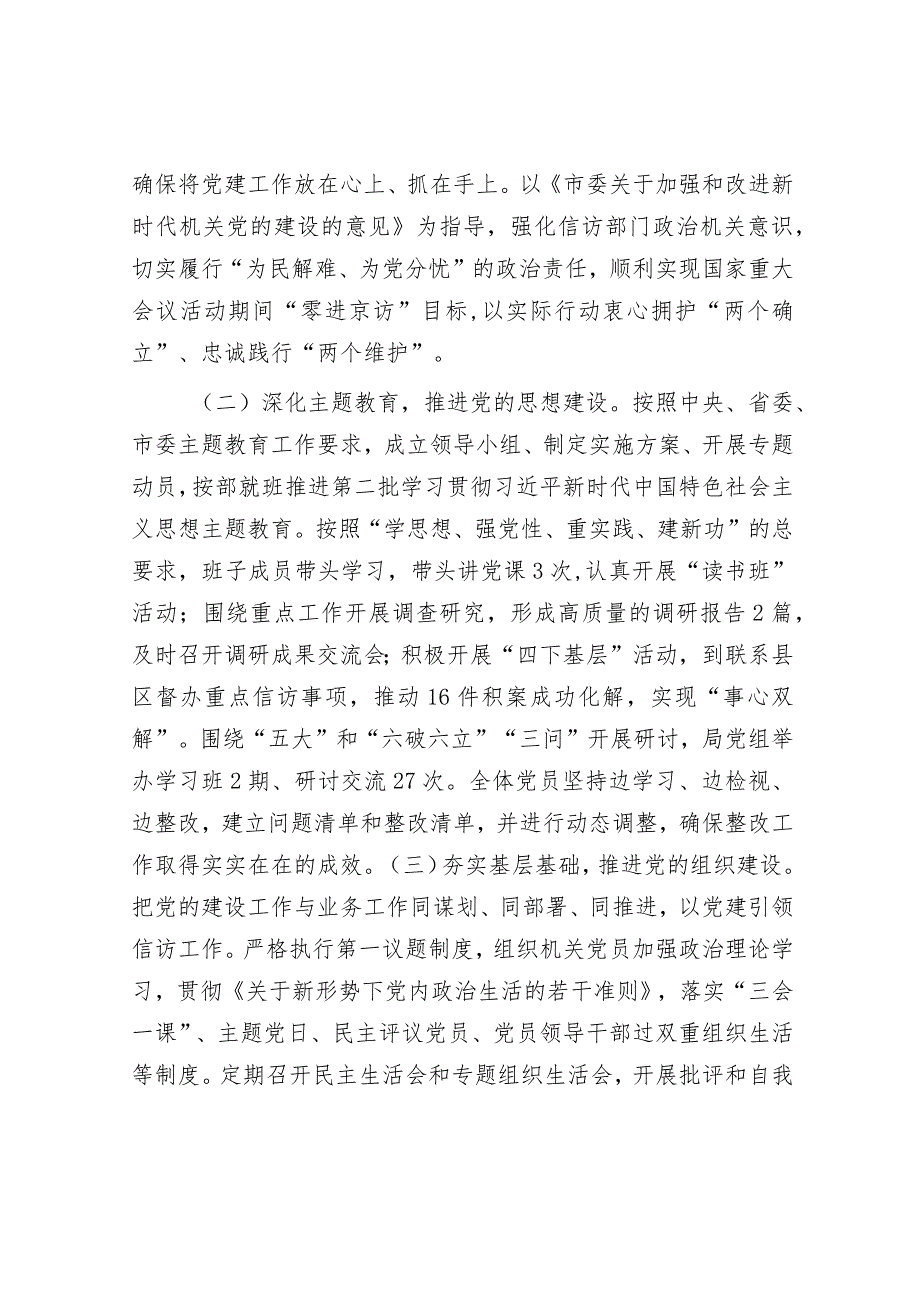 确保将党建工作放在心上、抓在手上。以《市委关于加强和改进新
时代机关党的建设的意见》为指导，强化信访部门政治机关意识，
切实履行“为民解难、为党分忧”的政治责任，顺利实现国家重大
会议活动期间“零进京访”目标,以实际行动衷心拥护“两个确
立”、忠诚践行“两个维护”。
（二）深化主题教育，推进党的思想建设。按照中央、省委、
市委主题教育工作要求，成立领导小组、制定实施方案、开展专题
动员,按部就班推进第二批学习贯彻习近平新时代中国特色社会主
义思想主题教育。按照“学思想、强党性、重实践、建新功”的总
要求，班子成员带头学习，带头讲党课3次,认真开展“读书班”
活动；围绕重点工作开展调查研究，形成高质量的调研报告2篇，
及时召开调研成果交流会;积极开展“四下基层”活动，到联系县
区督办重点信访事项，推动16件积案成功化解，实现“事心双
解”。围绕“五大”和“六破六立”“三问”开展研讨，局党组举
办学习班2期、研讨交流27次。全体党员坚持边学习、边检视、
边整改，建立问题清单和整改清单，并进行动态调整，确保整改工
作取得实实在在的成效。（三）夯实基层基础，推进党的组织建设。
把党的建设工作与业务工作同谋划、同部署、同推进，以党建引领
信访工作。严格执行第一议题制度，组织机关党员加强政治理论学
习，贯彻《关于新形势下党内政治生活的若干准则》，落实“三会
一课”、主题党日、民主评议党员、党员领导干部过双重组织生活
等制度。定期召开民主生活会和专题组织生活会，开展批评和自我